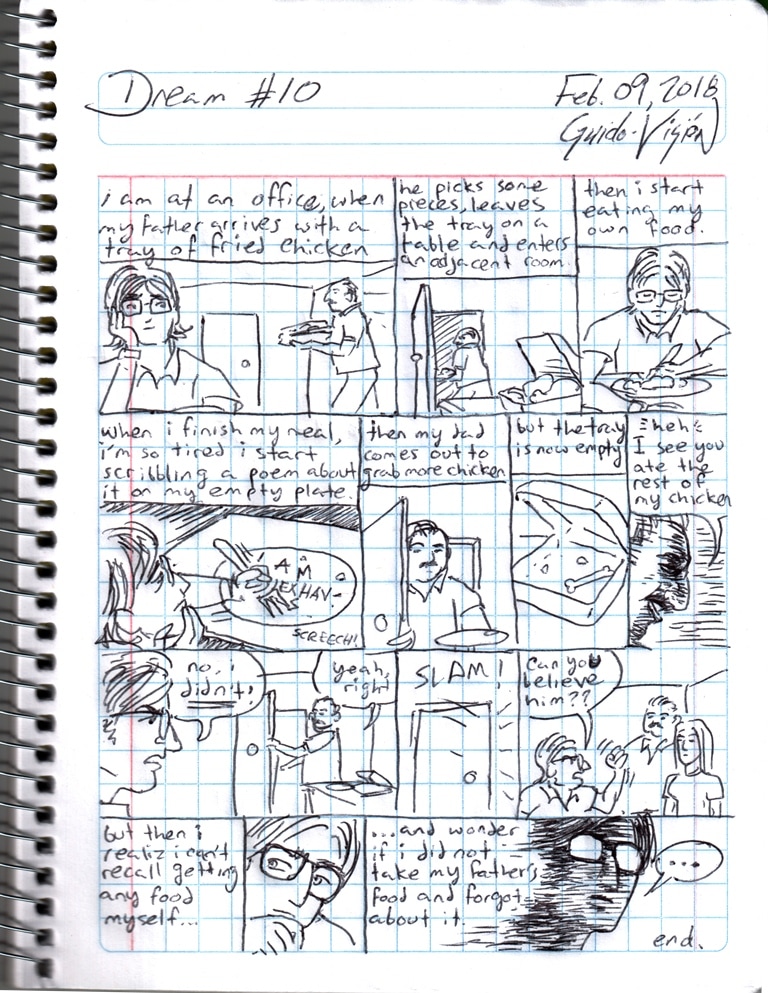 Dream #10
Feb. 09, 2018
Guido-Visión
i am at an office, when
my father arrives with a
tray of fried chicken
he picks some
pieces, leaves
the tray on a
table and enters
an adjacent room.
then i start
eating my
own food.
when i finish my meal,
i'm so tired i start
scribbling a poem about
it on my empty plate.
I AM
EXHAV-
SCREECH!
then my dad
comes out to
grab more chicken
but the tray
is now empty
heh
I see you
ate the
rest of
my chicken
no, i
didn't!
yeah,
right!
SLAM!
Can you
believe
him??
but then i
realiz i can't
recall getting
any food
myself...
...and wonder
if i did not
take my father's
food and forgot
about it.
...
end.